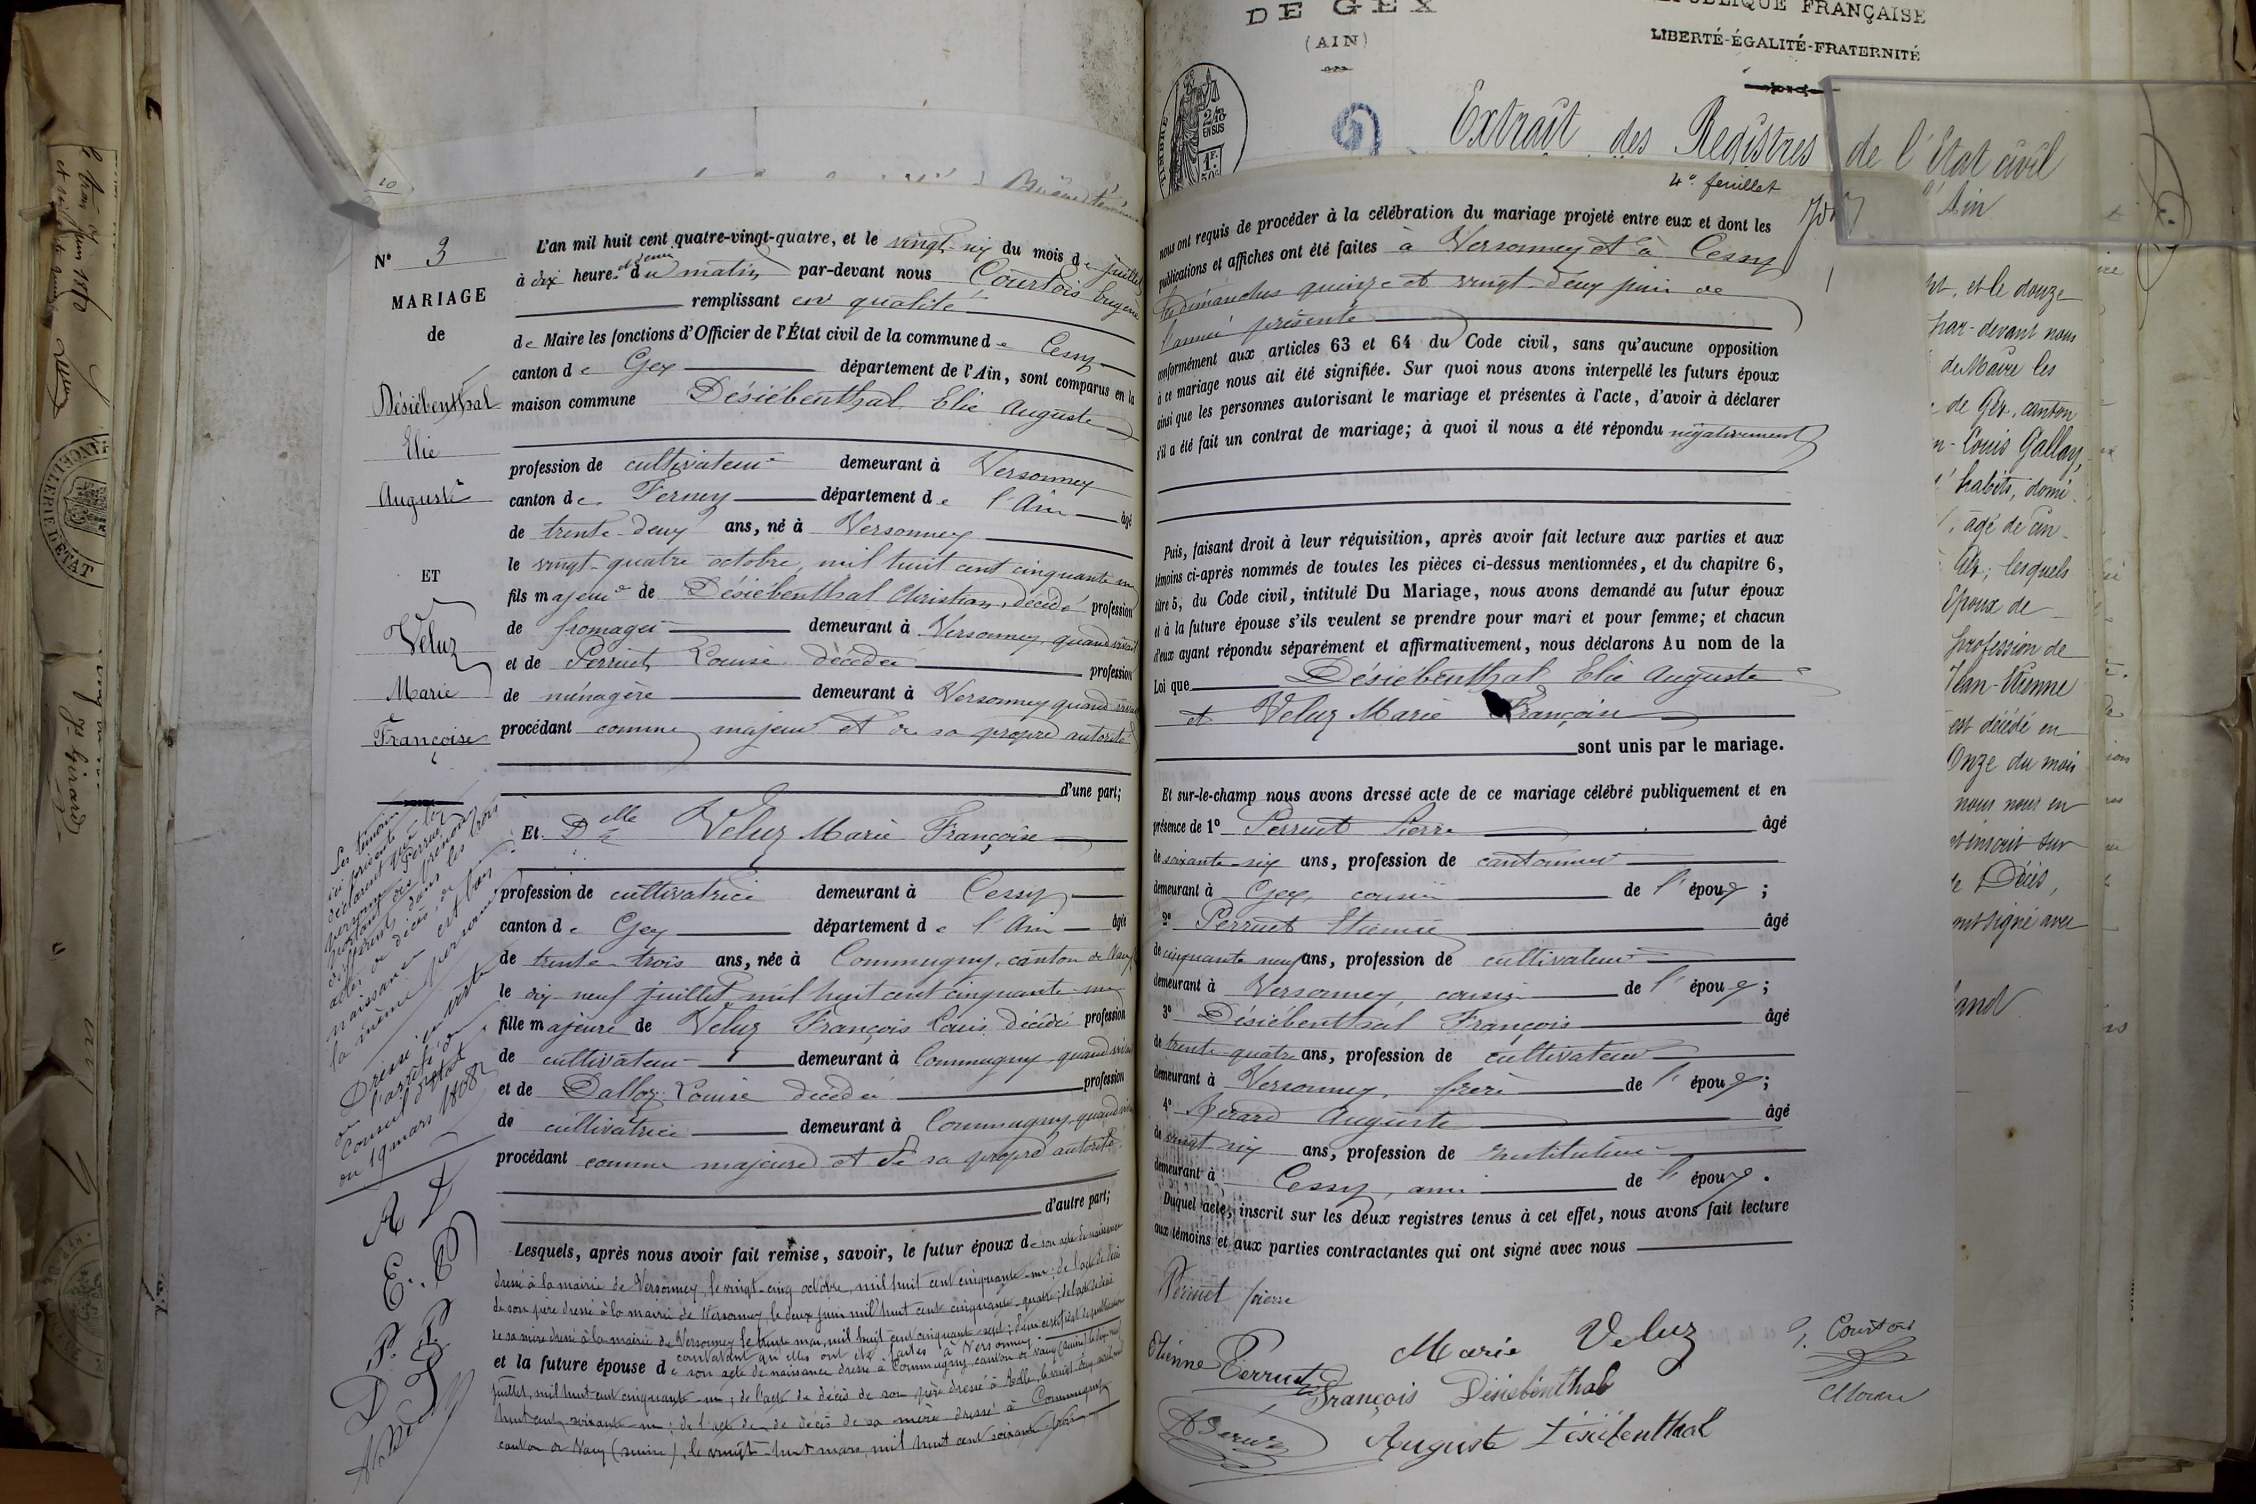 10
N° 3
MARIAGE
de
Désiébenthal
Elie
Auguste
ET
Veluz
Marie
Françoise
Les témoins
ici présents
déclarent que la
personne
différents dans les trois
actes de décès, de
naissance est bien
la même personne
Dressé en vertu
de l'arrêté du
Conseil d'état
du 19 mars 1808
L'an mil huit cent quatre-vingt-quatre, et le vingt-six du mois de juillet
à dix heures du matin par-devant nous Courtois Eugène
remplissant en qualité
de Maire les fonctions d'Officier de l'État civil de la commune de Cessy
canton de Gex département de l'Ain, sont comparus en la
maison commune Désiébenthal Elie Auguste
profession de cultivateur demeurant à Versonnex
canton de Ferney département de l'Ain âgé
de trente-deux ans, né à Versonnex
le vingt-quatre octobre, mil huit cent cinquante un
fils majeur de Désiébenthal Christian, décédé profession
de fromager demeurant à Versonnex quand vivait
et de Perruet Louise décédée profession
de ménagère demeurant à Versonnex quand vivait
procédant comme majeur et de sa propre autorité
d'une part;
Et Delle Veluz Marie Françoise
profession de cultivatrice demeurant à Cessy
canton de Gex département de l'Ain âgée
de trente-trois ans, née à Commugny, canton de Vaud
le dix-neuf juillet mil huit cent cinquante-un
fille majeure de Veluz François Louis décédé profession
de cultivateur demeurant à Commugny quand vivait
et de Dalloz Louise décédée profession
de cultivatrice demeurant à Commugny quand vivait
procédant comme majeure et de sa propre autorité
d'autre part;
Lesquels, après nous avoir fait remise, savoir, le futur époux de son acte de naissance
dressé à la mairie de Versonnex, le vingt-cinq octobre, mil huit cent cinquante-un; de l'acte de décès
de son père dressé à la mairie de Versonnex, le deux juin mil huit cent cinquante-quatre; de l'acte de décès
de sa mère dressé à la mairie de Versonnex le trente mai, mil huit cent cinquante-sept; d'un certificat de publication
constatant qu'elles ont été faites à Versonnex
et la future épouse de son acte de naissance dressé à Commugny canton de Vaud (suisse) le dix-neuf
juillet, mil huit cent cinquante-un; de l'acte de décès de son père dressé à
huit cent soixante-un; de l'acte de décès de sa mère dressé à Commugny
canton de Vaud (suisse), le vingt-huit mars, mil huit cent soixante-trois
DE GEX
(AIN)
RÉPUBLIQUE FRANÇAISE
LIBERTÉ-ÉGALITÉ-FRATERNITÉ
TIMBRE
2/10
EN SUS
1F.
50c
Extrait des Registres de l'État civil
l'Ain
4e. feuillet
nous ont requis de procéder à la célébration du mariage projeté entre eux et dont les
publications et affiches ont été faites à Versonnex et à Cessy
les dimanches quinze et vingt-deux juin de
l'année présente
conformément aux articles 63 et 64 du Code civil, sans qu'aucune opposition
à ce mariage nous ait été signifiée. Sur quoi nous avons interpellé les futurs époux
ainsi que les personnes autorisant le mariage et présentes à l'acte, d'avoir à déclarer
s'il a été fait un contrat de mariage; à quoi il nous a été répondu négativement
Puis, faisant droit à leur réquisition, après avoir fait lecture aux parties et aux
témoins ci-après nommés de toutes les pièces ci-dessus mentionnées, et du chapitre 6,
titre 5, du Code civil, intitulé Du Mariage, nous avons demandé au futur époux
et à la future épouse s'ils veulent se prendre pour mari et pour femme; et chacun
d'eux ayant répondu séparément et affirmativement, nous déclarons Au nom de la
Loi que Désiébenthal Elie Auguste
et Veluz Marie Françoise
sont unis par le mariage.
Et sur-le-champ nous avons dressé acte de ce mariage célébré publiquement et en
présence de 1° Perruet Pierre âgé
de soixante-six ans, profession de cantonnier
demeurant à Gex, cousin de l'époux;
2° Perruet Etienne âgé
de cinquante neuf ans, profession de cultivateur
demeurant à Versonnex, cousin de l'époux;
3° Désiébenthal François âgé
de trente-quatre ans, profession de cultivateur
demeurant à Versonnex, frère de l'époux;
4° Auguste âgé
de vingt-six ans, profession de instituteur
demeurant à Cessy, ami de l'époux.
Duquel acte, inscrit sur les deux registres tenus à cet effet, nous avons fait lecture
aux témoins et aux parties contractantes qui ont signé avec nous
Perruet pierre
Etienne Perruet
Marie Veluz
François Désiébenthal
Auguste Désiébenthal
Courtois
Maire
et le douze
par-devant nous
de Maire les
de Gex, canton
Louis Gallay,
habits, domi-
âgé de cin-
Gex; lesquels
Epoux de
profession de
Jean-Etienne
est décédé en
Onze du mois
nous nous en
inscrit sur
de Décès,
ont signé avec
CHANCELLERIE D'ÉTAT
Girard